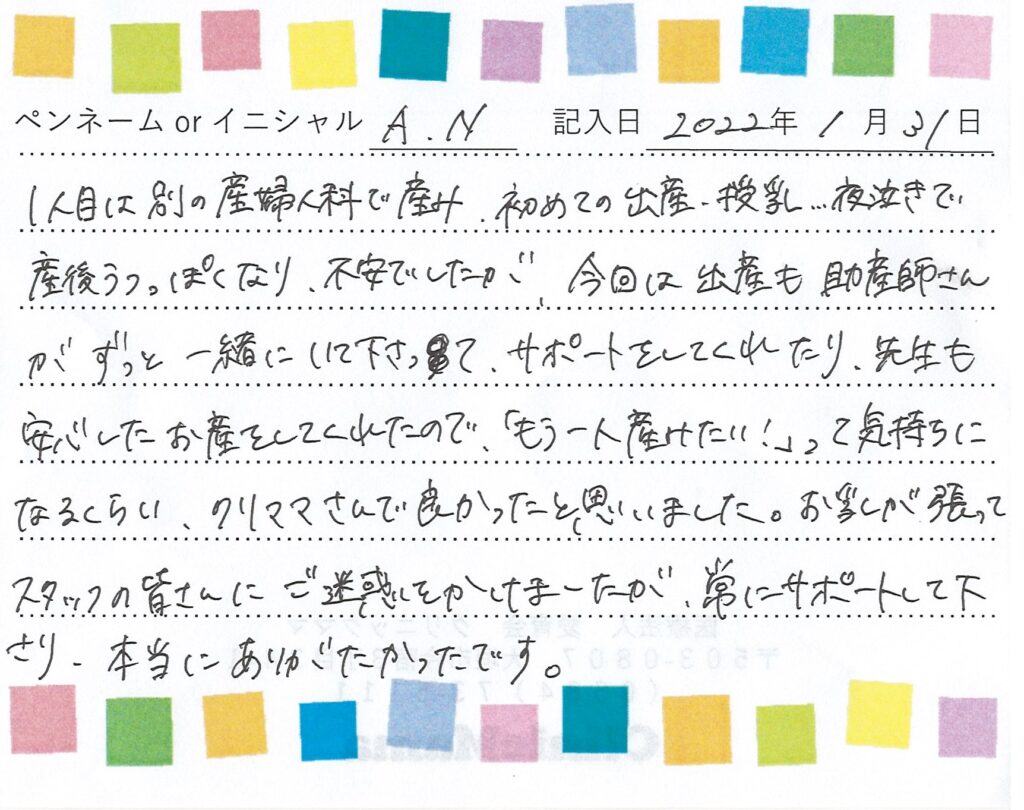 ペンネーム or イニシャル A.N 記入日 2022年 1月 31日
1人目は別の産婦人科で産み、初めての出産、授乳…夜泣きで
産後うつっぽくなり、不安でしたが、今回は出産も助産師さん
がずっと一緒にいて下さって、サポートをしてくれたり、先生も
安心したお産をしてくれたので、「もう一人産みたい!」って気持ちに
なるくらい、クリママさんで良かったと思いました。お乳が張って
スタッフの皆さんにご迷惑をかけましたが、常にサポートして下
さり、本当にありがたかったです。
医療法人 愛育会 クリニックママ
〒503-0807